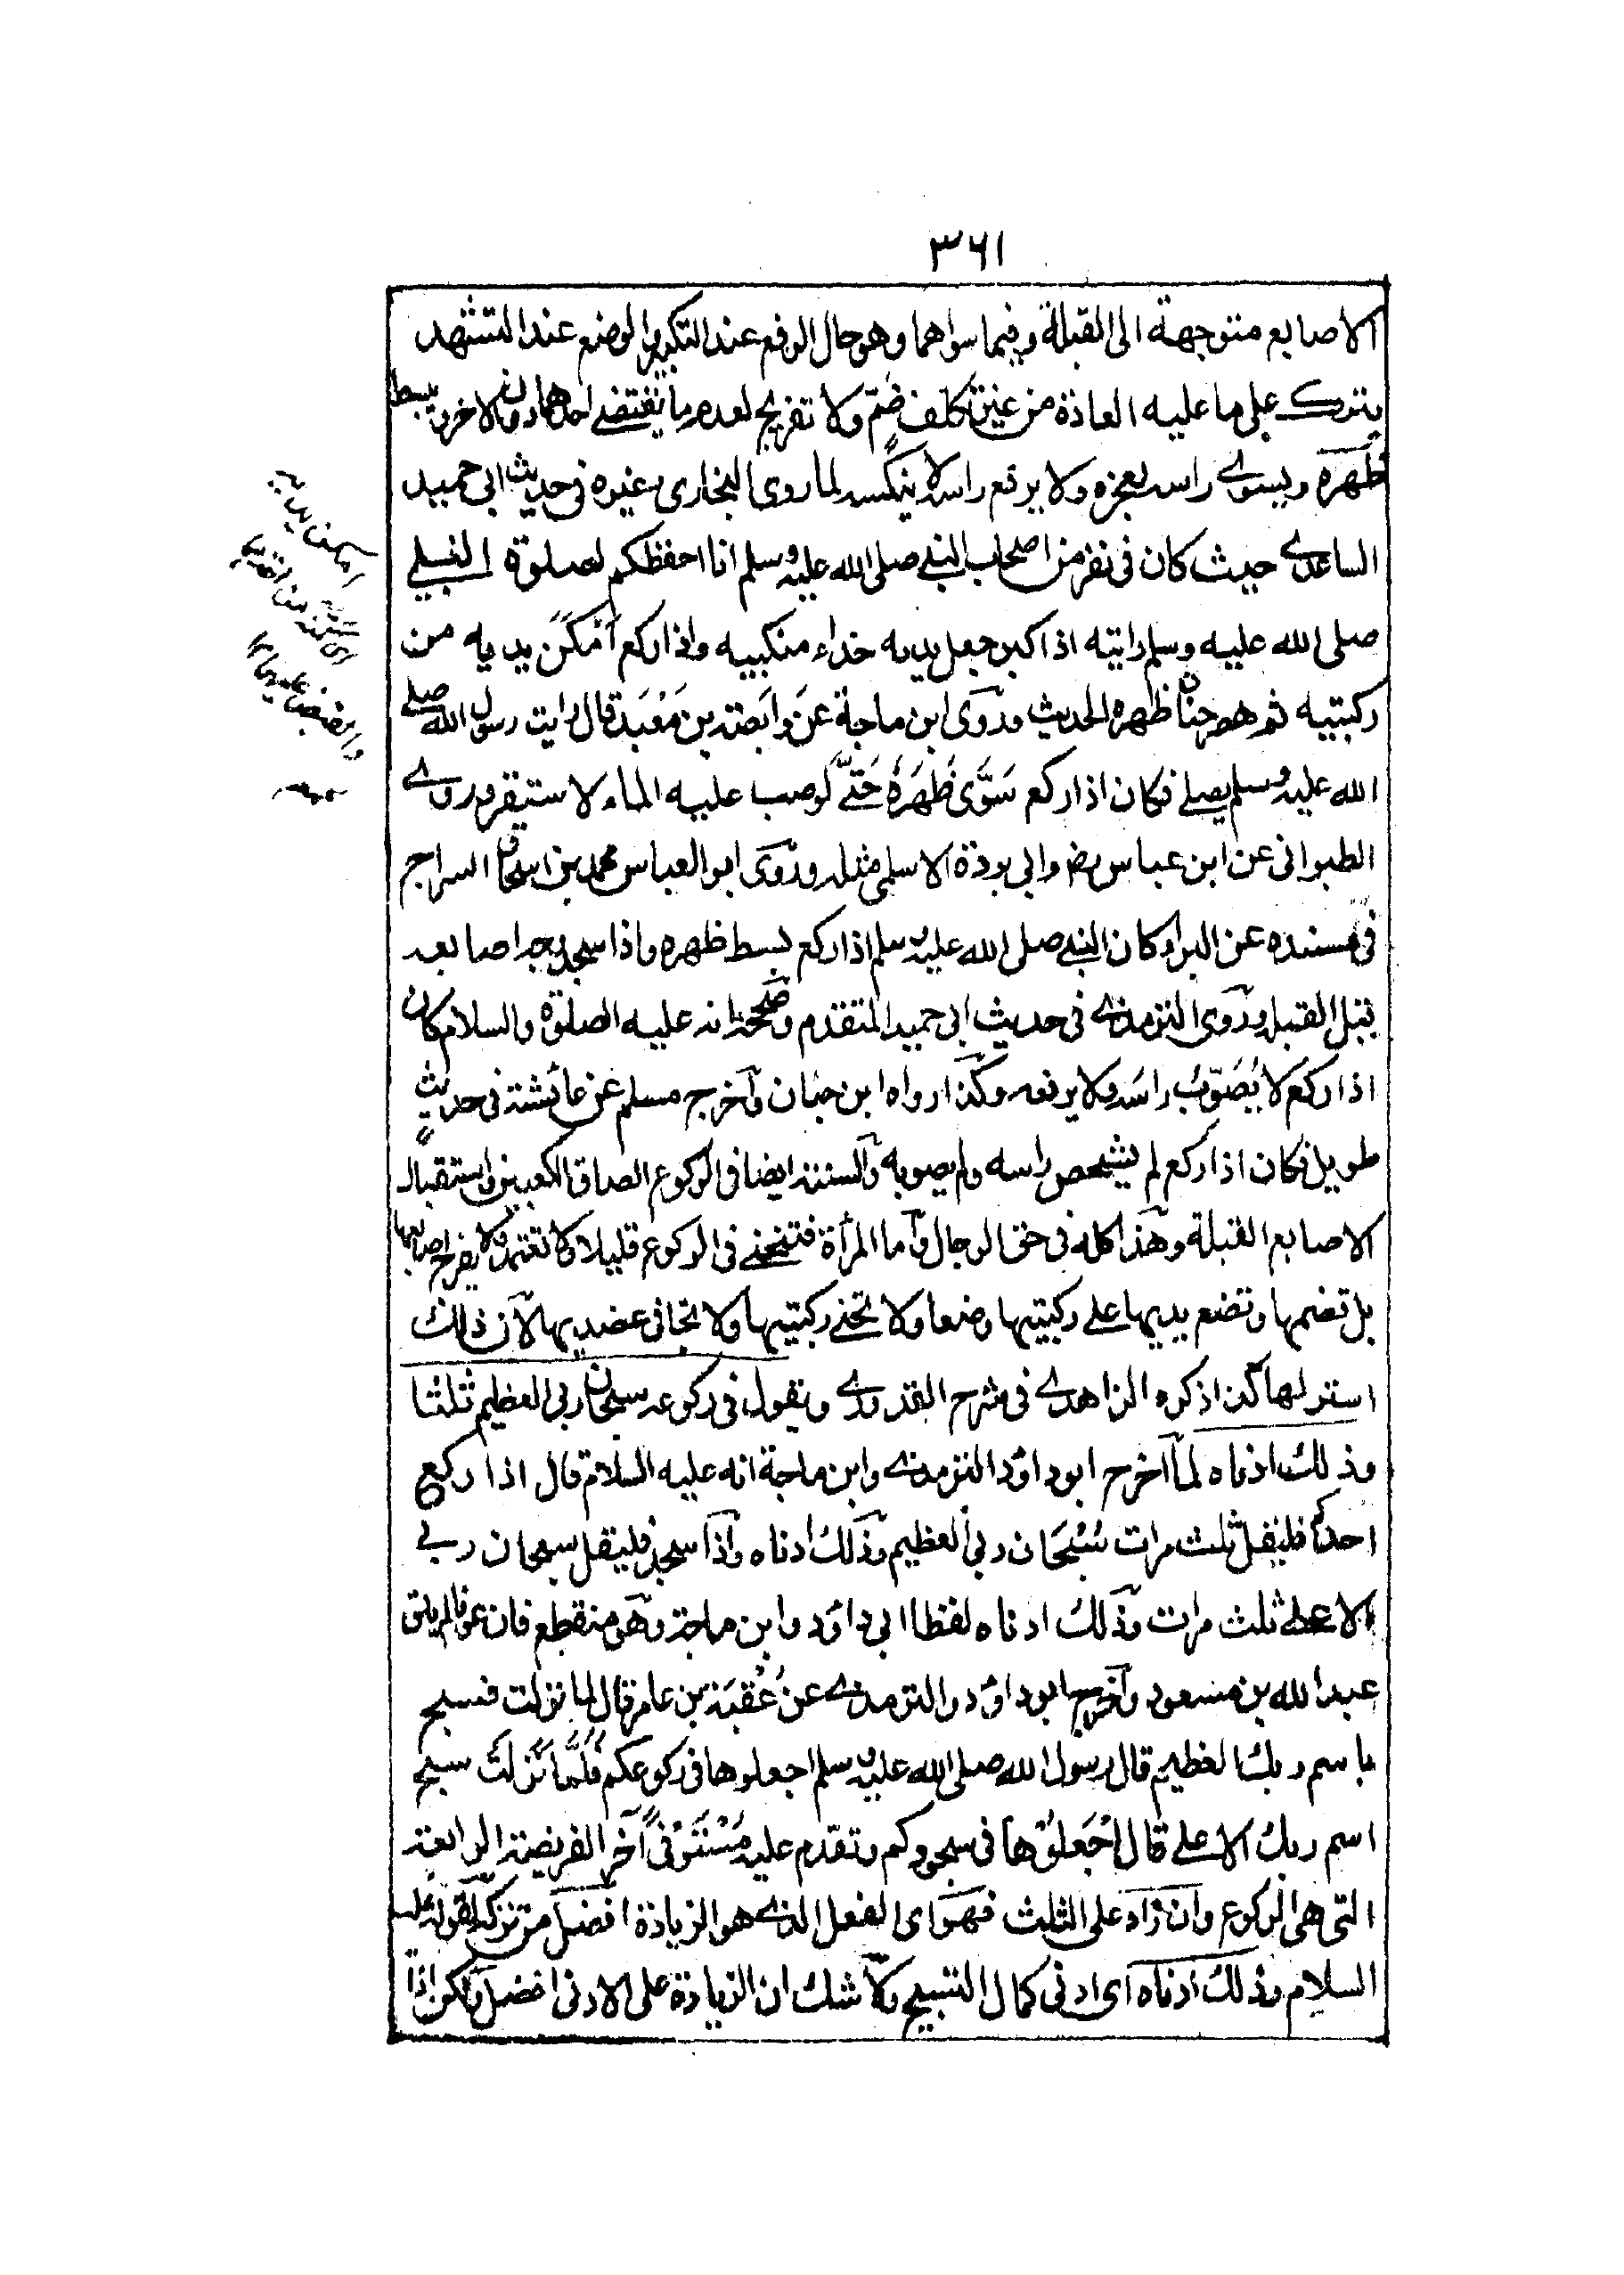 ٣٦١
الاصابع متوجهة الى القبلة وفيما سواهما وهو حال الرفع عند التكبير والوضع عند التشهد
يترك على ما عليه العادة من غير تكلف ضمّ ولا تفريج لعدم ما يقتضى احدهما دون الاخر ويبسط
ظَهره ويسوے راسه بعجزه ولا يرفع راسه ولا ينكّسه لما روى البخارى وغيره فى حديث ابى حميد
الساعدے حيث كان فى نفر من اصحاب النبے صلى الله عليه وسلم انا احفظكم لصلوة النبے
صلى الله عليه وسلم رايته اذا كبر جعل يديه حذاء منكبيه واذا ركع اَمْكَن يديه من
ركبتيه ثم هصر حنا ظهره الحديث وروى ابن ماجة عَن وابصة بن مَعْبَد قال رايت رسول الله صلے
الله عليه وسلم يصلے فكان اذا ركع سَوَّى ظَهَرهُ حَتّے لو صب عليه الماء لاستقر وروے
الطبرانى عن ابن عباس رض وابى برزة الاسلمى مثله وروى ابو العباس محمد بن اسحاق السراج
فى مسنده عن البراء كان النبے صلى الله عليه وسلم اذا ركع بسط ظهره واذا سجد وجه اصابعه
قبل القبلة وروى الترمذے فى حديث ابى حميد المتقدم وصححه انه عليه الصلوة والسلام كان
اذا ركع لا يُصَوّبُ راسَه ولا يرفعه وكذا رواه ابن حبان وآخرج مسلم عن عائشة فى حديث
طويل فكان اذا ركع لم يشخص راسه ولم يصوبه والسنة ايضا فى الركوع الصاق الكعبين واستقبال
الاصابع القبلة وهَذا كله فى حق الرجال وآما المرأة فتنحنے فى الركوع قليلا ولا تعتمد ولا يفرج اصابعها
بل تضمها وتضع يديها على ركبتيها وضعا ولا تحنے ركبتيها ولا تجافى عضديها لان ذلك
استر لها كذا ذكره الزاهدے فى شرح القدورے ويقول فى ركوعه سبحان ربى العظيم ثلثا
وذلك ادناه لما آخرج ابو داود والترمذے وابن ماجة انه عليه السلام قال اذا ركع
احدكم فليقل ثلث مرات سُبْحَان ربى العظيم وذلك ادناه واذا سجد فليقل سبحان ربے
الاعلے ثلث مرات وذلك ادناه لفظ ابى داود وابن ماجة وهو منقطع فان عونا لم يلق
عبد الله بن مسعود وآخرج ابو داود والترمذے عن عُقبَة بن عامر قال لما نزلت فسبح
باسم ربك العظيم قال رسول الله صلى الله عليه وسلم اجعلوها فى ركوعكم فَلَمَّا نَزَلَت سبح
اسم ربك الاعلے قال اجْعَلوْها فى سجودكم وتقدم عليه مُسْتَوْفىً آخر الفريضة الرابعة
التى هى الركوع وان زاد على الثلث فهو اى الفعل الذے هو الزيادة افضل من تركه لقوله عليه
السلام وذلك ادناه اى ادنى كمال التسبيح ولا شك ان الزيادة على الادنى افضل ولكن اذا
امكن يديه